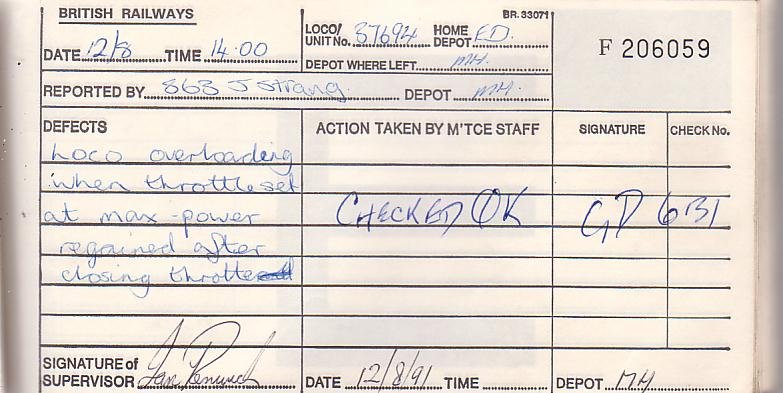 BRITISH RAILWAYS
BR. 33071
LOCO/ UNIT No. 37694 HOME DEPOT ED.
F 206059
DATE 12/8 TIME 14.00
DEPOT WHERE LEFT MH.
REPORTED BY 363 J Strang. DEPOT MH.
DEFECTS ACTION TAKEN BY M'TCE STAFF SIGNATURE CHECK No.
Loco overloading
when throttle set
at max - power CHECKED OK GD 6131
regained after
closing throttle
SIGNATURE of SUPERVISOR DATE 12/8/91 TIME DEPOT MH